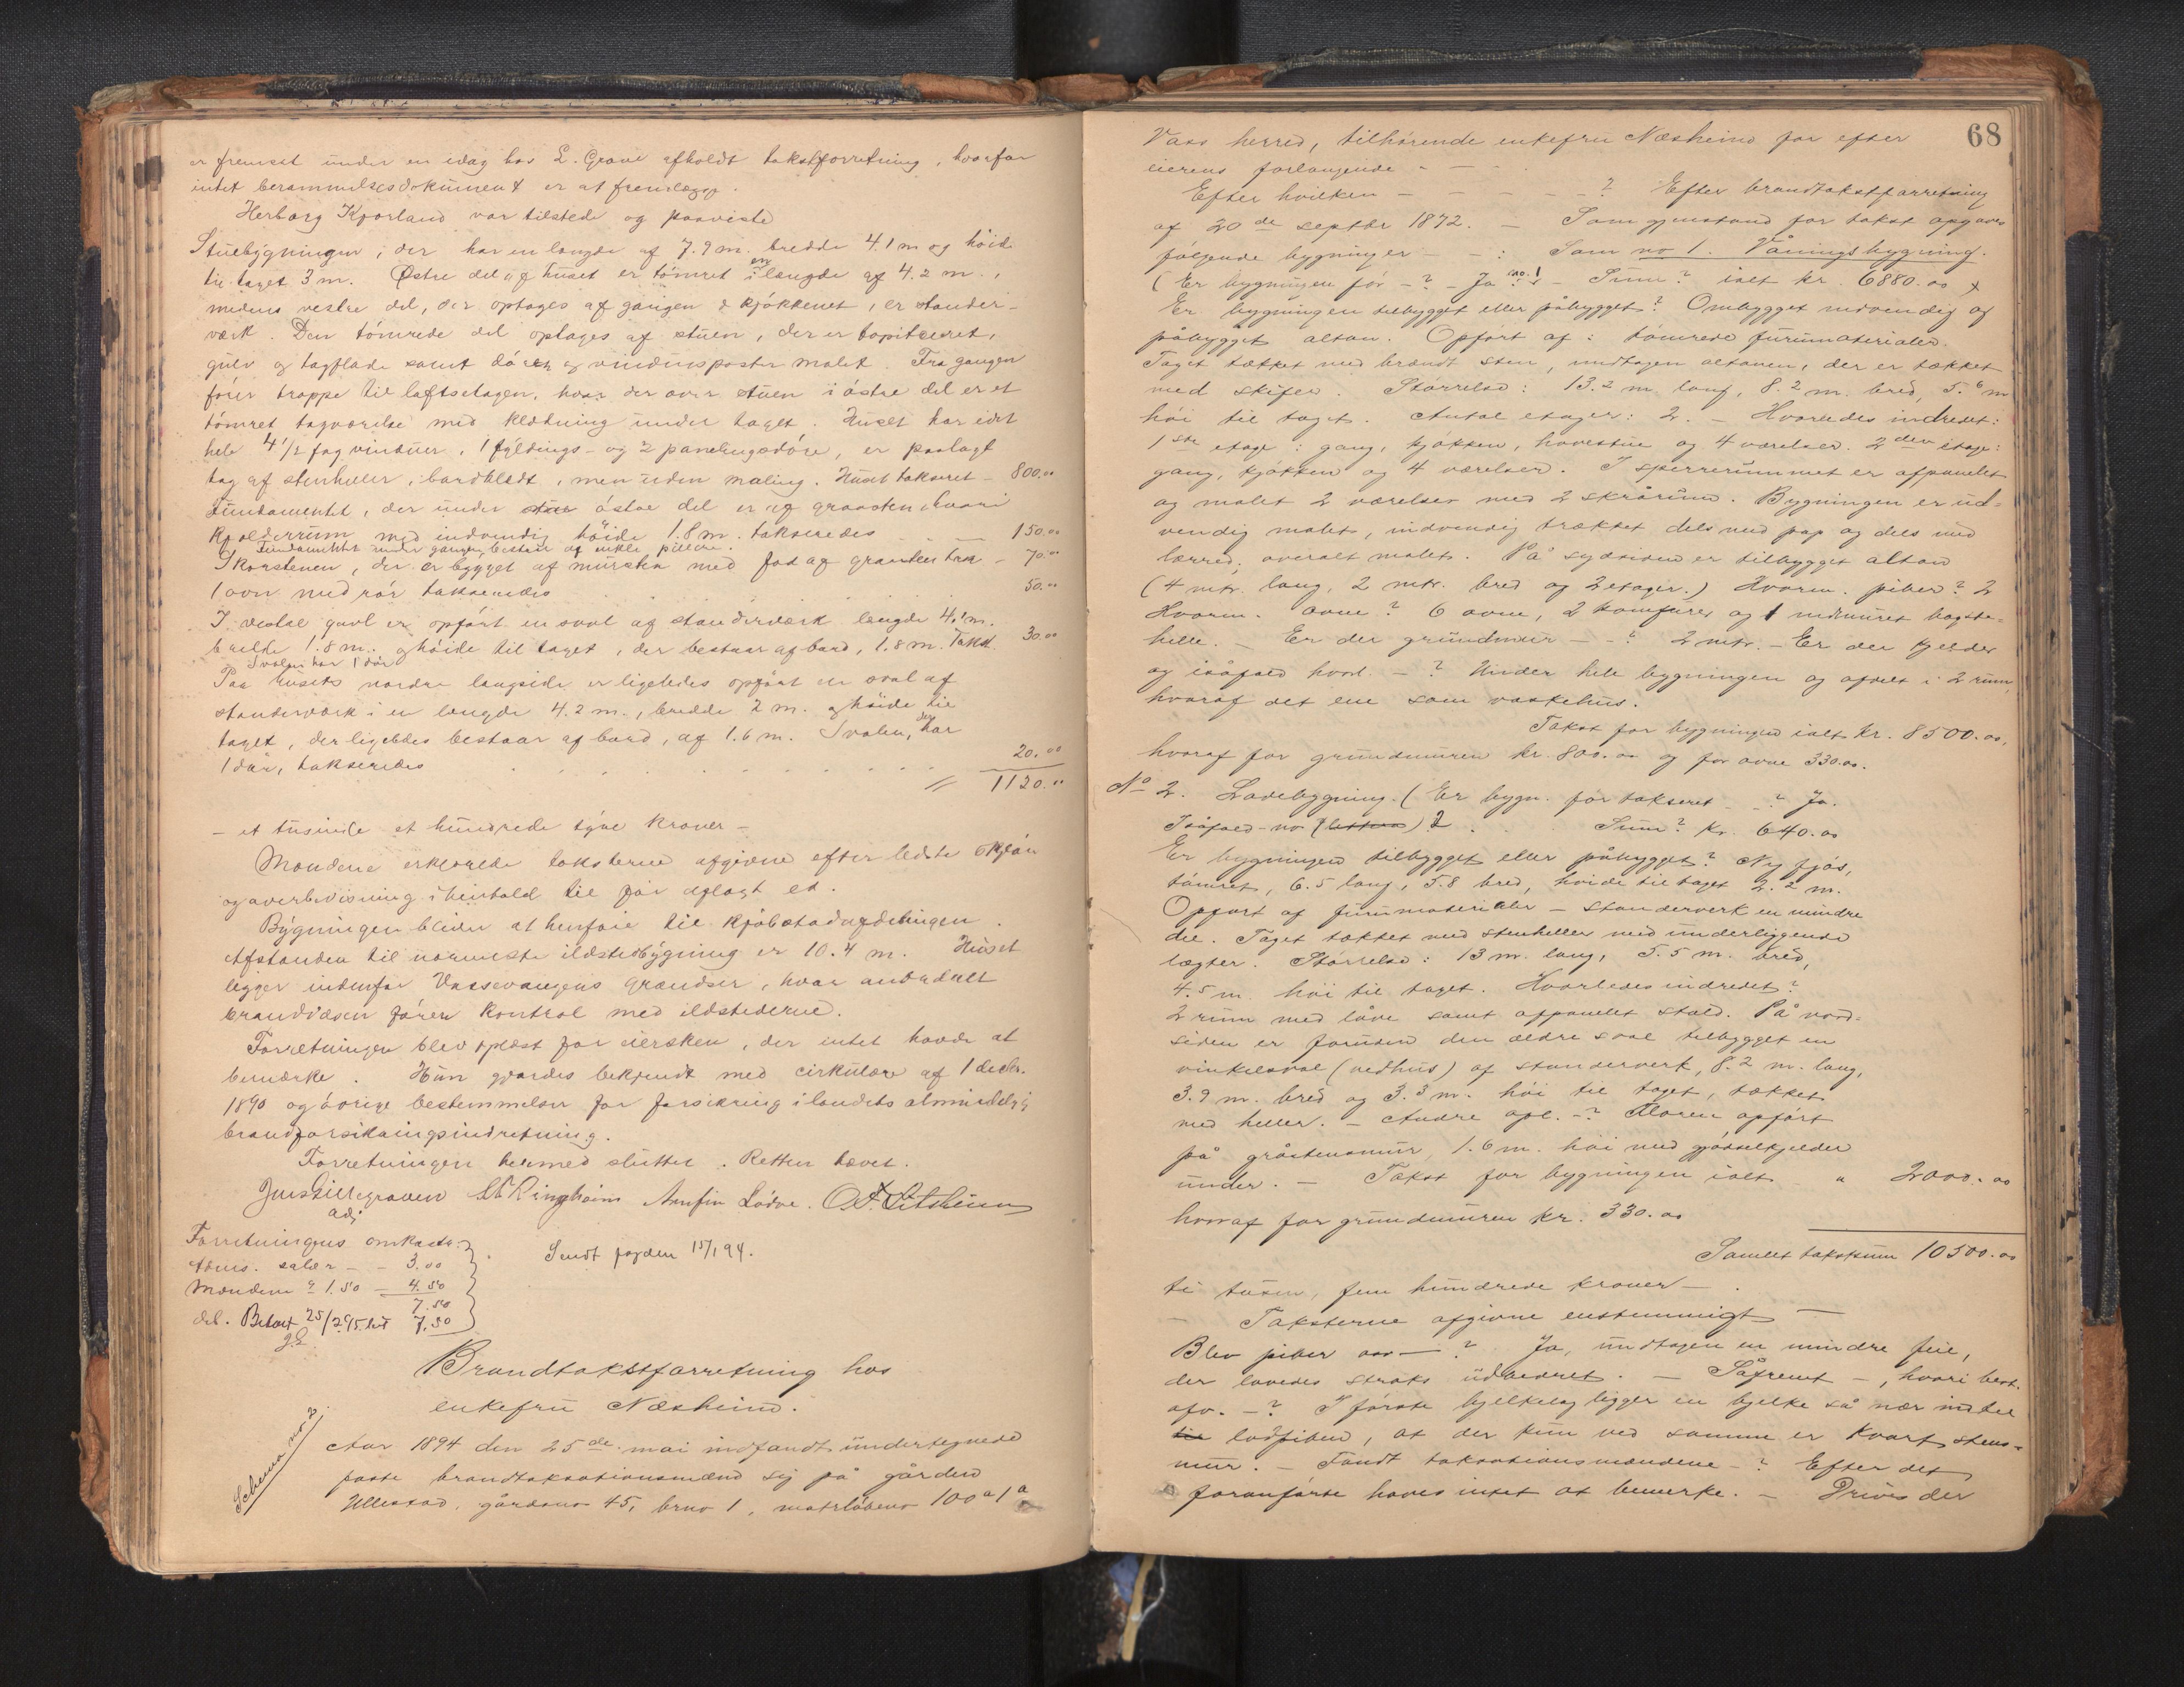 er fremsat under en idag hos L. Grave afholdt takstforretning, hvorfor
intet berammelsesdokument er at fremlægge.
Herborg Kjorland var tilstede og paaviste
Stuebygningen, der har en længde af 7.9 m. bredde 4.1 m og höide
til taget 3 m. Østre del af huset er tömret i en længde af 4.2 m.,
medens vestre del, der optages af gangen & kjökkenet, er stander-
værk. Den tömrede del optages af stuen, der er tapitseret,
gulv og tagflade samt dören og vinduesposter malet. Fra gangen
förer trappe til loftsetagen, hvor der over stuen i östre del er et
tömret tagværelse med klædning under taget. Huset har idet
hele 4 1/2 fag vinduer, 1 fyldings- og 2 panelingsdöre, er paalagt
tag af stenheller, bordklædt, men uden maling. Huset takseret - 800.00
Fundamentet, der under östre del er af graasten, hvori
kjælderrum med indvendig höide 1.8 m. takseredes 150.00
Fundamentet under gangen bestaar af enkle pillere.
Skorstenen, der er bygget af mursten med fod af graasten takst - 70.00
1 ovn med rör takseredes 50.00
I vestre gavl er opfört en sval af standerværk længde 4.1 m.
bredde 1.8 m. og höide til taget, der bestaar af bord, 1.8 m. Takst. 30.00
Svalen har 1 dör
Paa husets nordre langside er ligeledes opfört en sval af
standerværk i en længde 4.2 m., bredde 2 m. og höide til
taget, der ligeledes bestaar af bord, af 1.6 m. Svalen, der har
1 dör, takseredes . . . . . . . . 20.00
1120.00
- et tusinde et hundrede tyve kroner -
Mændene erklærede taksterne afgivne efter bedste skjön
og overbevisning i henhold til för aflagt ed.
Bygningen bliver at henföie til kjöbstadafdelingen.
Afstanden til nærmeste ildstedsbygning er 10.4 m. Huset
ligger indenfor Vossevangens grændser, hvor anbefalt
brandvæsen förer kontrol med ildstederne.
Forretningen blev oplæst for eiersken, der intet havde at
bemærke. Hun gjordes bekjendt med cirkulære af 1 decbr.
1890 og övrige bestemmelser for forsikring i landets almindelige
brandforsikringsindretning.
Forretningen hermed sluttet. Retten hævet.
Jens Lillegraven Ringheim Arnfin Lödve.
adj
Forretningens omkostn:
Adms. salær - - 3.00
Mændene à 1.50 - 4.50
7.50
deb. Betalt 25/2 95 7.50
Sendt fogden 15/1 94.
Brandtakstforretning hos
enkefru Næsheim.
Schema no 2.
Aar 1894 den 25de mai indfandt undertegnede
faste brandtaksationsmænd sig på gården
Ullestad, gårdsno 45, brno 1, matrløbeno 100 a 1 a
68
Voss herred, tilhörende enkefru Næsheim for efter
eierens forlangende -
Efter hvilken - - - - ? Efter brandtakstforretning
af 20de septbr 1872. - Som gjenstand for takst opgaves
fölgende bygninger - - : Som no 1. Våningsbygning.
(Er bygningen för - ? - Ja no. 1 - Sum? ialt kr. 6880.00
Er bygningen tilbygget eller påbygget? Ombygget indvendig og
påbygget altan. Opfört af: tömrede furumaterialer.
Taget tækket med brændt sten, undtagen altanen, der er tækket
med skifer. Störrelse: 13.2 m. lang, 8.2 m. bred, 5.6 m
höi til taget. Antal etager: 2. - Hvorledes indredet:
1ste etage: gang, kjökken, havestue og 4 værelser. 2den etage:
gang, kjökken og 4 værelser. I sperrerummet er afpanelet
og malet 2 værelser med 2 skrårum. Bygningen er ud-
vendig malet, indvendig trækket dels med pap og dels med
lærred, overalt malet. På sydsiden er tilbygget altan
(4 mtr. lang, 2 mtr. bred og 2 etager.) Hvorm. piber? 2
Hvorm. ovne? 6 ovne, 2 komfurer og 1 indmuret bagste-
helle. - Er der grundmur - - ? 2 mtr. - Er der kjelder
og isåfald hvorl. - ? Under hele bygningen og afdelt i 2 rum,
hvoraf det ene som vaskehus.
Takst for bygningen ialt kr. 8500.00,
hvoraf for grundmuren kr. 800.00 og for ovne 330.00.
No 2. Ladebygning. (Er bygn. för takseret - ? Ja.
Isåfald - no (littera) 2 . Sum? Kr. 640.00
Er bygningen tilbygget eller påbygget? Ny fjös,
tömret, 6.5 lang, 5.8 bred, höide til taget 2.2 m.
Opfört af furumaterialer - standerverk en mindre
del. Taget tækket med stenheller med underliggende
lægter. Störrelse: 13 m. lang, 5.5 m. bred,
4.5 m. höi til taget. Hvorledes indredet?
2 rum med låve samt afpanelet stald. På nord-
siden er foruden den ældre sval tilbygget en
vinkelsval (vedhus) af standerverk, 8.2 m. lang,
3.9 m. bred og 3.3 m. höi til taget, tækket
med heller. - Andre opl. - ? Floren opfört
på gråstensmur, 1.6 m. höi med gjödselkjelder
under. - Takst for bygningen ialt " 2000.00
hvoraf for grundmuren kr. 330.00
Samlet takstsum 10500.00
ti tusen, fem hundrede kroner -
Taksterne afgivne enstemmigt -
Blev piber - ? Ja, undtagen en mindre feil,
der lovedes straks udbedret. - Såfremt -, hvori best.
afv. - ? I förste bjelkelag ligger en bjelke så nær indtil
lodpiben, at der kun ved samme er kvart stens-
mur. - Fandt taksationsmændene - ? Efter det
foranförte haves intet at bemerke. - Drives der